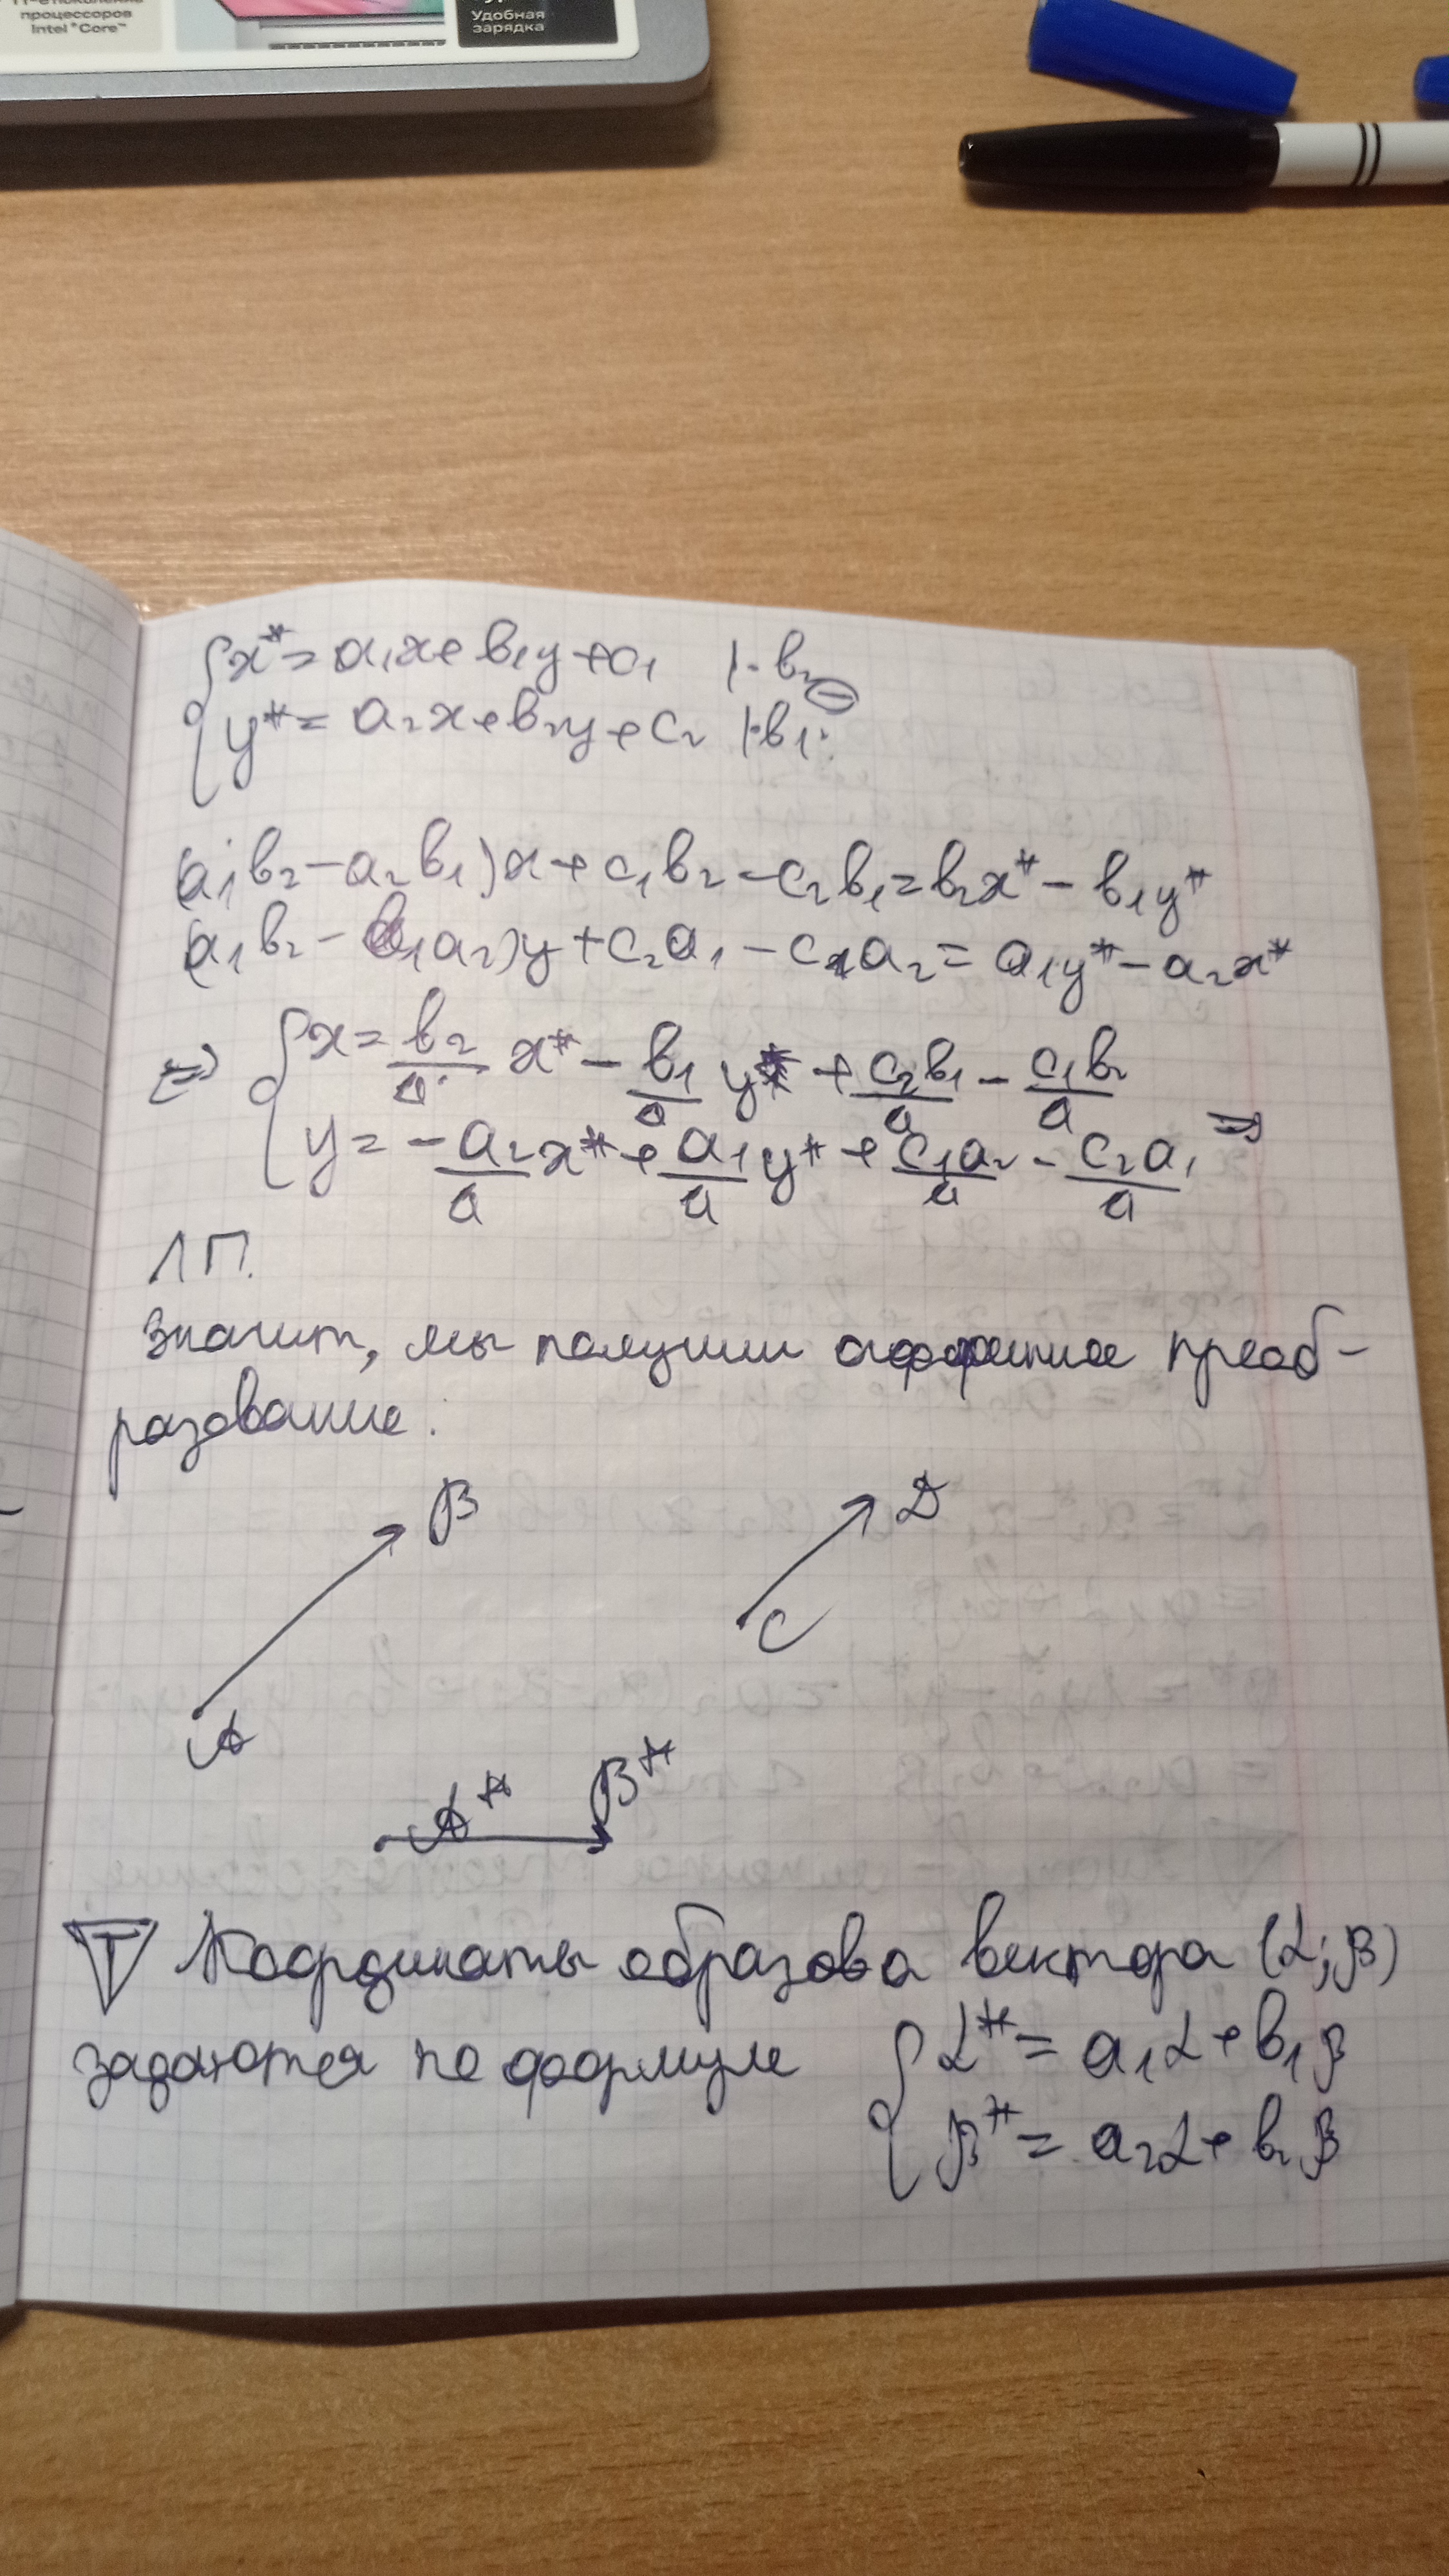 11-е поколение
процессоров
Intel® Core™
Удобная
зарядка
{x* = a₁x + b₁y + c₁ |·b₂ ⊖
{y* = a₂x + b₂y + c₂ |·b₁
(a₁b₂ - a₂b₁)x + c₁b₂ - c₂b₁ = b₂x* - b₁y*
(a₁b₂ - b₁a₂)y + c₂a₁ - c₁a₂ = a₁y* - a₂x*
=> {x = b₂/a x* - b₁/a y* + c₂b₁/a - c₁b₂/a
{y = -a₂/a x* + a₁/a y* + c₁a₂/a - c₂a₁/a =>
ЛП.
значит, мы получили аффинное преоб-
разование.
B D
C
A
A* B*
T Координаты образова вектора (α; β)
задаются по формуле {α* = a₁α + b₁β
{β* = a₂α + b₂β